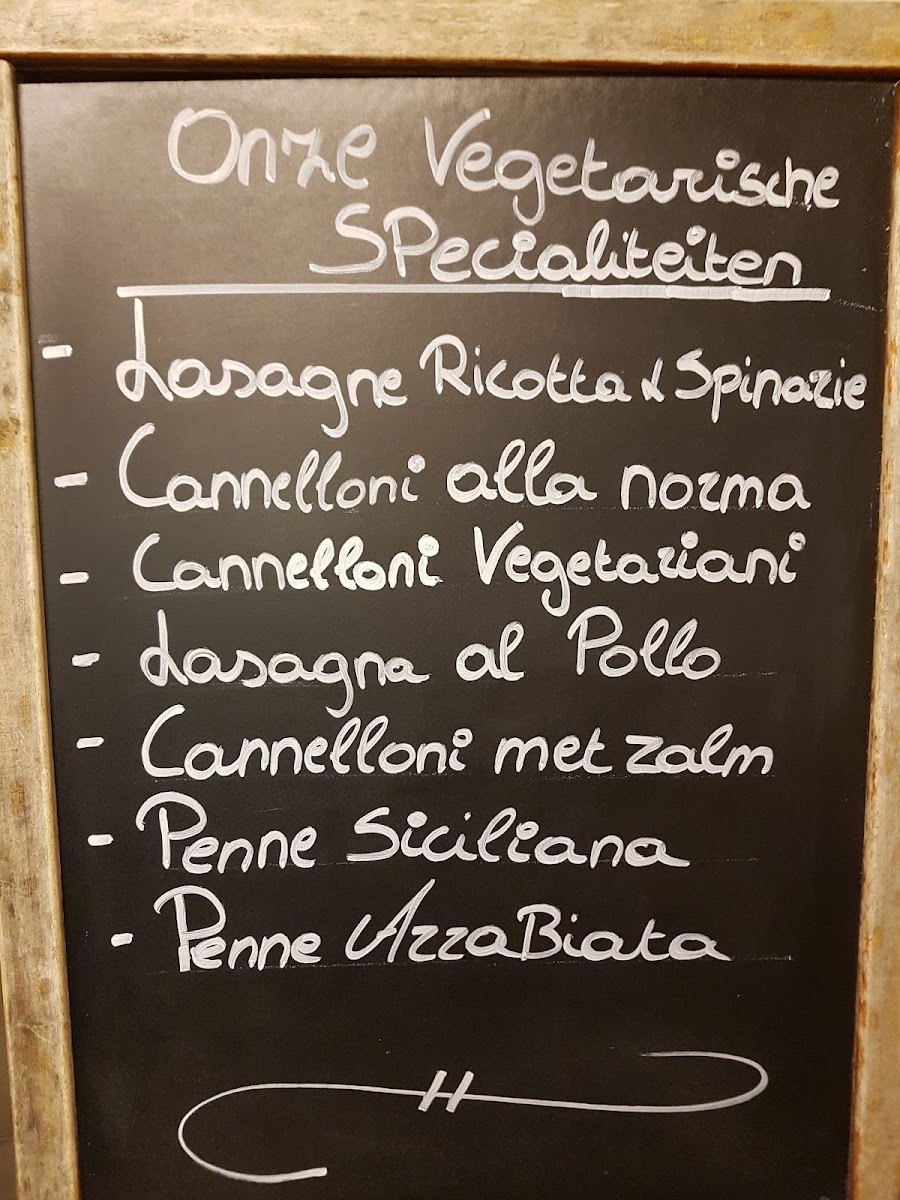 Onze Vegetarische
Specialiteiten
- Lasagne Ricotta & Spinazie
- Cannelloni alla norma
- Cannelloni Vegetariani
- Lasagna al Pollo
- Cannelloni met zalm
- Penne Siciliana
- Penne ArraBiata